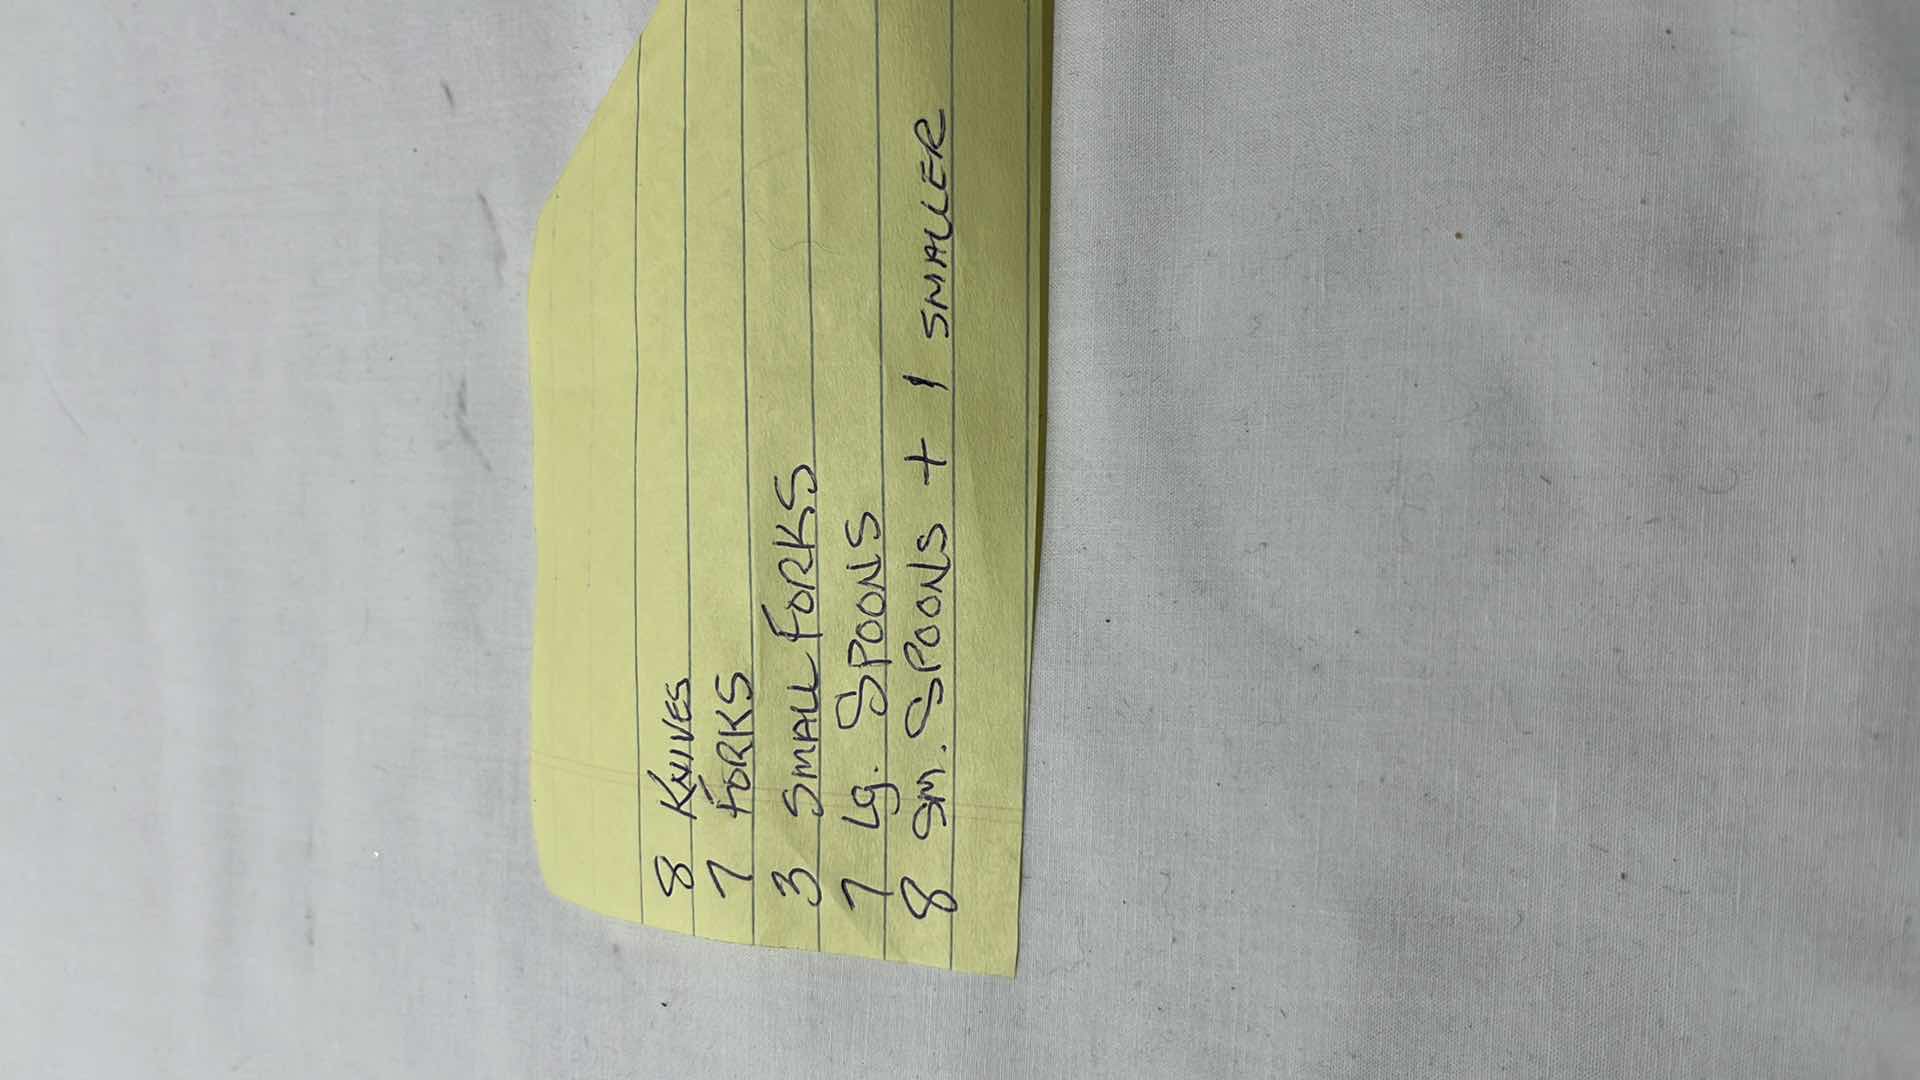 8 KNIVES
7 FORKS
3 SMALL FORKS
7 Lg. SPOONS
8 SM. SPOONS + 1 SMALLER